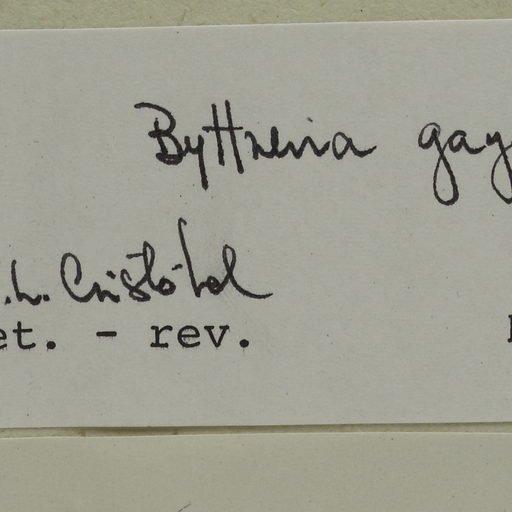 Byttneria gay
.L. Cristóbal
et. - rev.